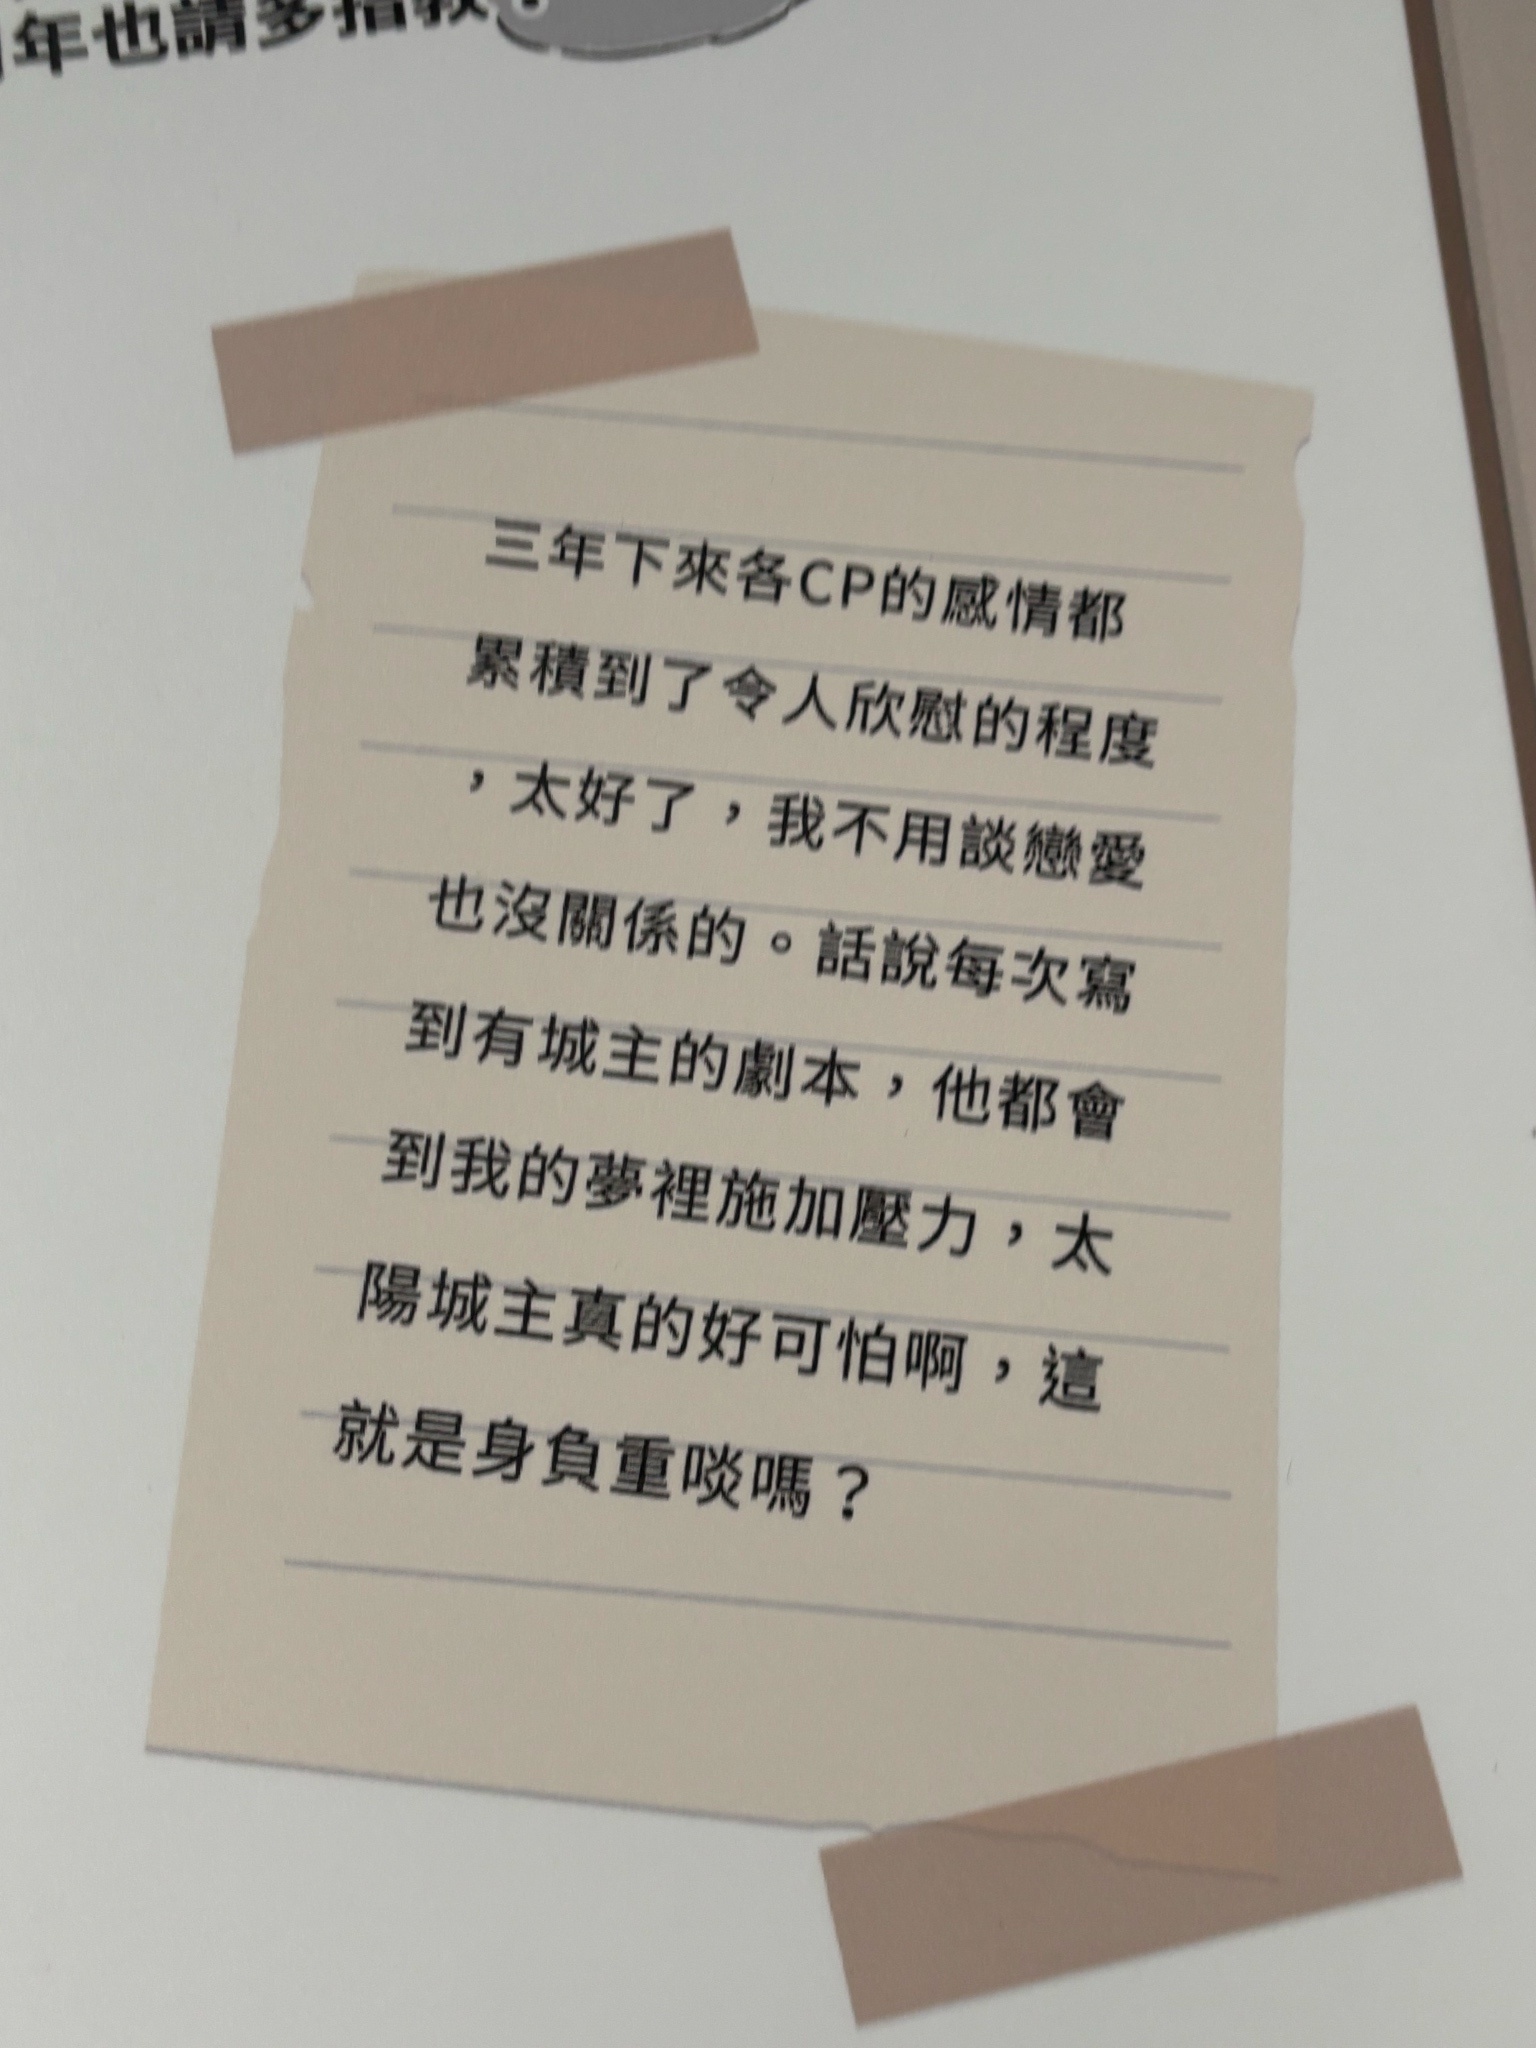 年也請多指教！
三年下來各CP的感情都
累積到了令人欣慰的程度
，太好了，我不用談戀愛
也沒關係的。話說每次寫
到有城主的劇本，他都會
到我的夢裡施加壓力，太
陽城主真的好可怕啊，這
就是身負重啖嗎？